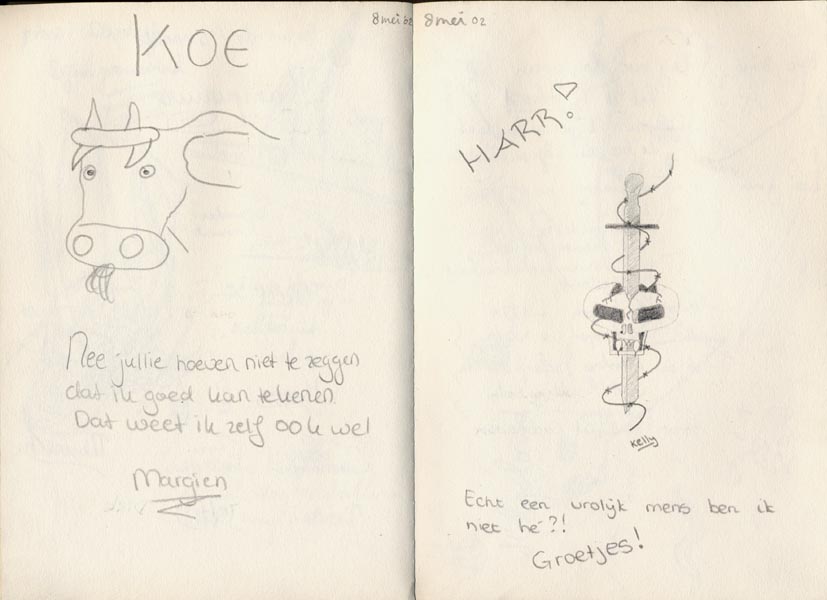 8 mei 02
KOE
Nee jullie hoeven niet te zeggen
dat ik goed kan tekenen.
Dat weet ik zelf ook wel
Margien
8 mei 02
HARR!
Kelly
Echt een vrolijk mens ben ik
niet hè?!
Groetjes!